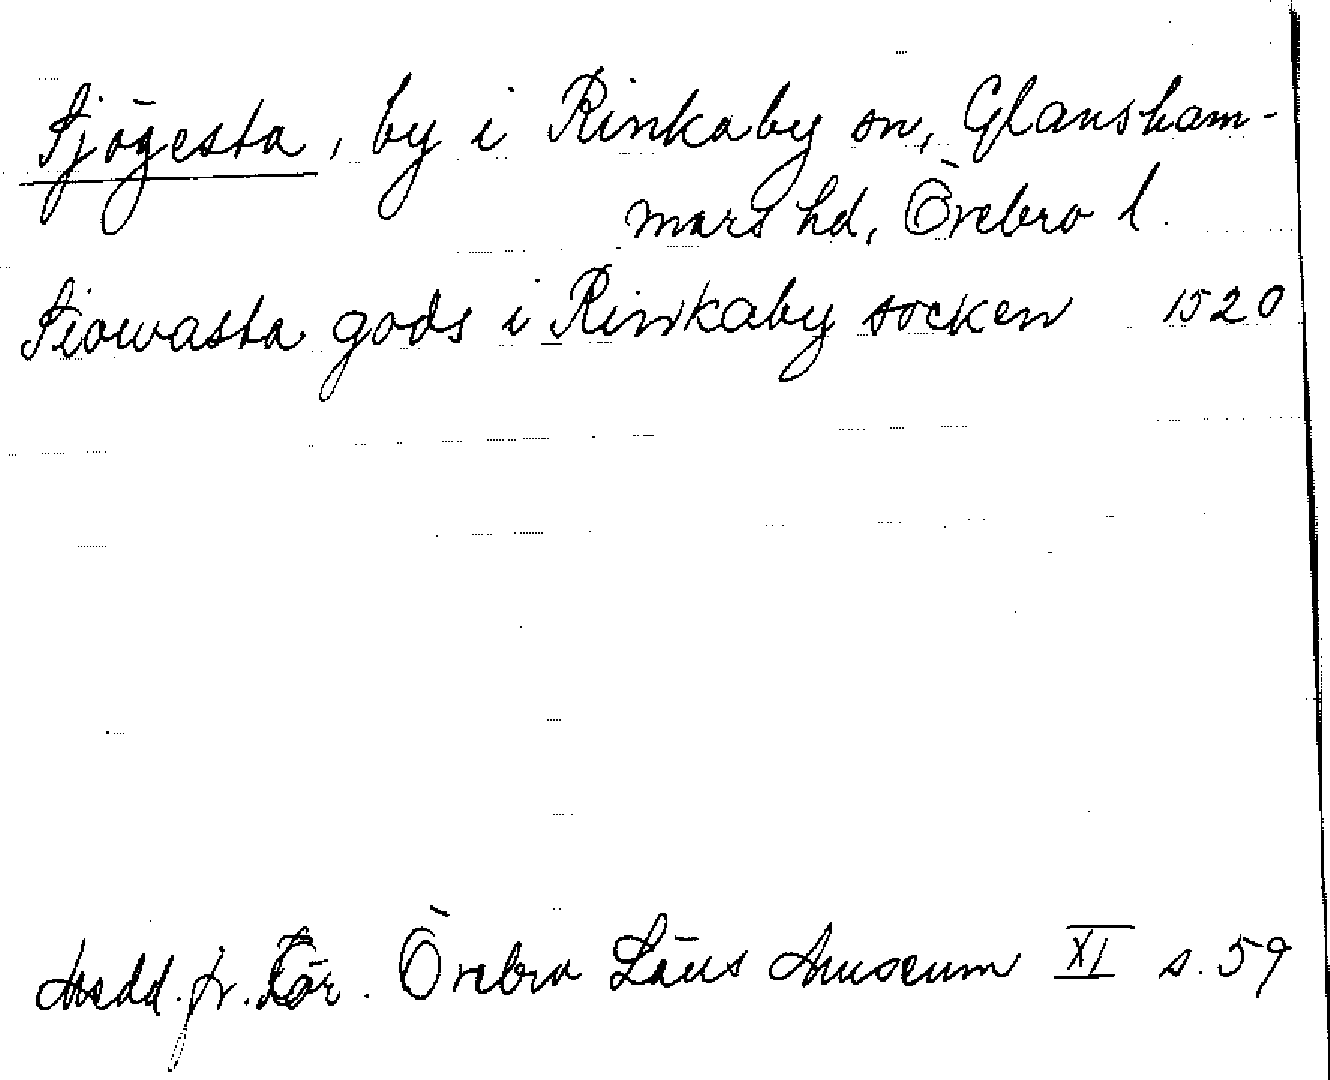 Sjögesta, by i Rinkaby sn, Glansham-
mars hd, Örebro l.
Siowasta gods i Rinkaby socken 1520
Medd. fr. För. Örebro Läns Museum XI s. 59